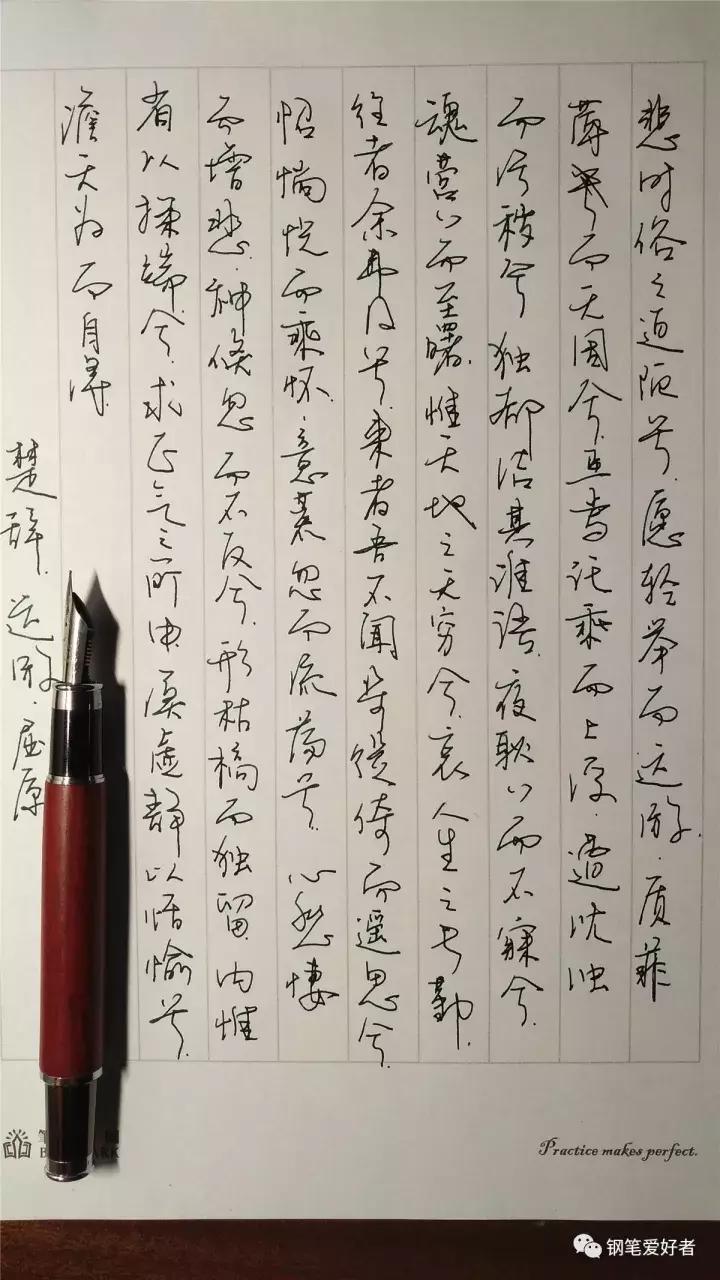 悲时俗之迫陋兮.愿轻举而远游.质菲
薄兮而无因兮.焉当托乘而上浮.遭沈浊
而污秽兮 独郁结其谁语.夜耿〻而不寐兮.
魂营〻而至曙.惟天地之无穷兮.哀人生之长勤.
往者余弗及兮.来者吾不闻.步徙倚而遥思兮.
怊惝怳而乘怀.意荒忽而流荡兮.心愁悽
而增悲.神倏忽而不反兮.形枯槁而独留.内惟
省以操端兮.求正气之所由.漠虚静以恬愉兮.
澹无为而自得.
楚辞.远游.屈原
Practice makes perfect.
钢笔爱好者